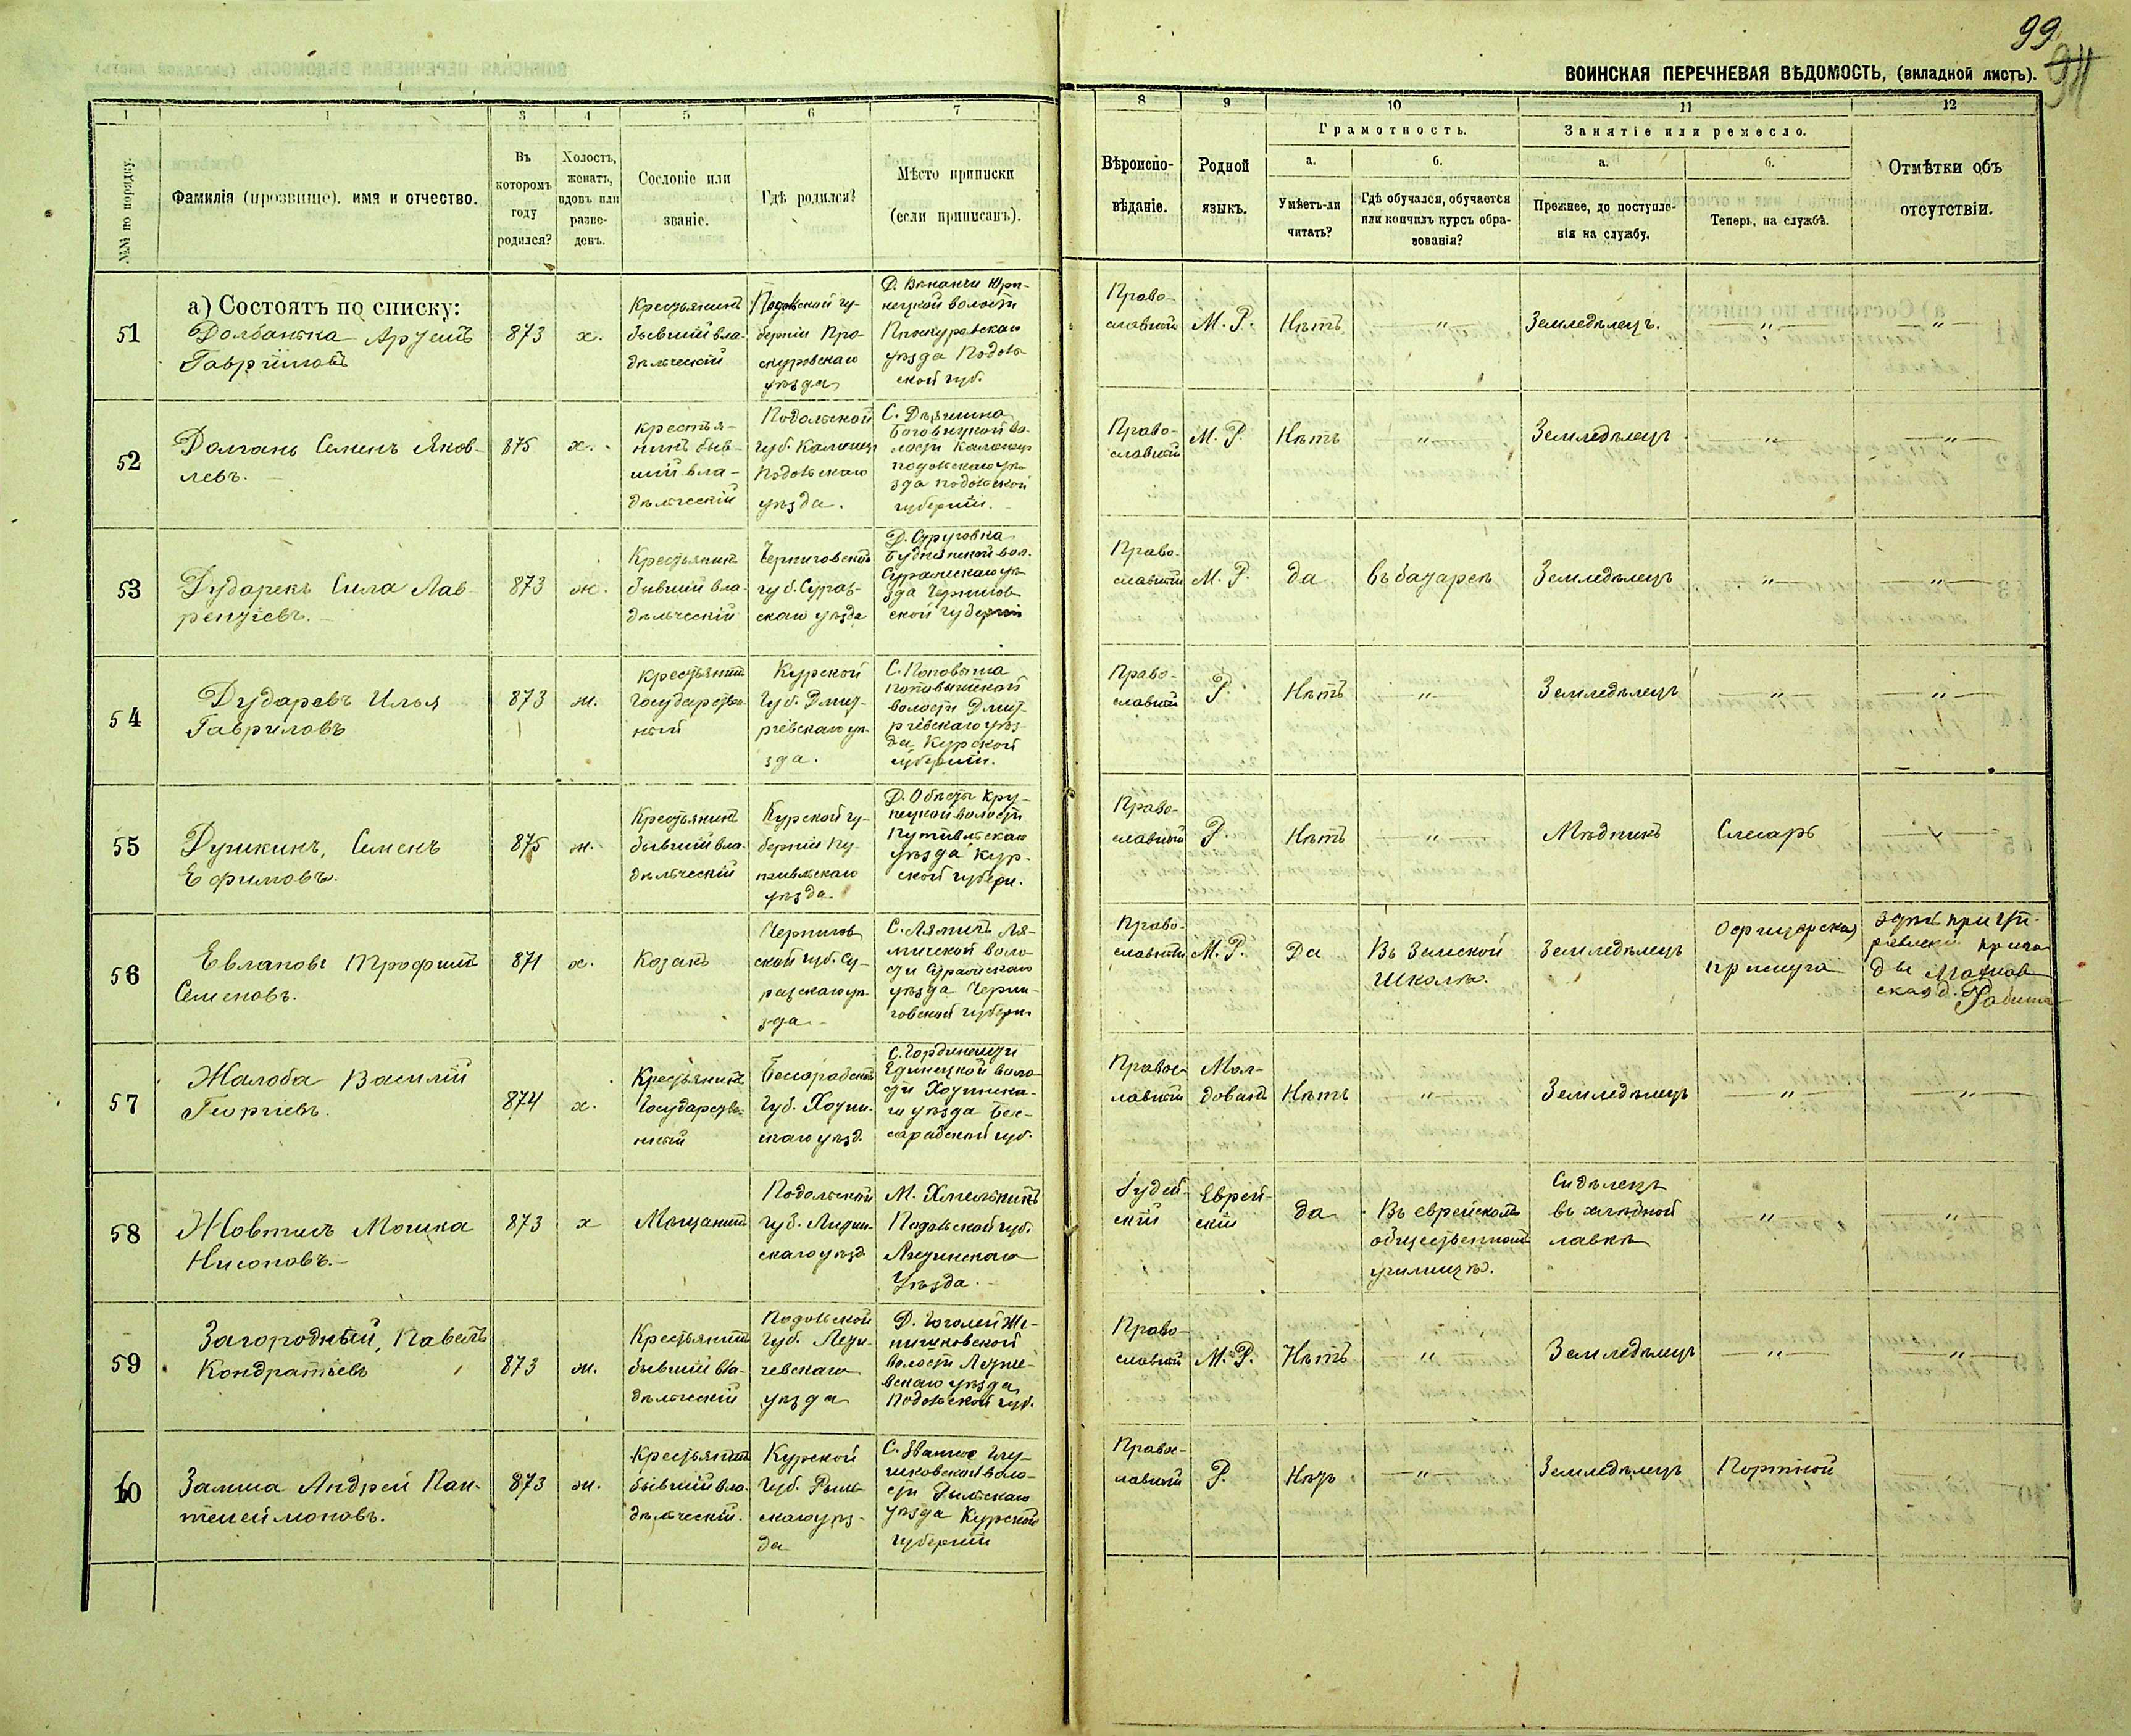 99
94
ВОИНСКАЯ ПЕРЕЧНЕВАЯ ВѢДОМОСТЬ, (вкладной листъ).
1
1
3
4
5
6
7
8
9
10
11
12
№№ по порядку.
Фамилія (прозвище), имя и отчество.
Въ
которомъ
году
родился?
Холостъ,
женатъ,
вдовъ или
разве-
денъ.
Сословіе или
званіе.
Гдѣ родился?
Мѣсто приписки
(если приписанъ).
Вѣроиспо-
вѣданіе.
Родной
языкъ.
Грамотность.
а.
Умѣетъ-ли
читать?
б.
Гдѣ обучался, обучается
или кончилъ курсъ обра-
зованія?
Занятіе или ремесло.
а.
Прежнее, до поступле-
нія на службу.
б.
Теперь, на службѣ.
Отмѣтки объ
отсутствіи.
а) Состоятъ по списку:
51
Гавріиловъ
873
х.
Крестьянинъ
бывшій вла-
дѣльческій
Подольской гу-
берніи Про-
скуровскаго
уѣзда
волости
Проскуровскаго
уѣзда Подоль
ской губ.
Право-
славный
М. Р.
Нѣтъ
"
Земледѣлецъ.
"
"
52
Долгань Семенъ Яков-
левъ.
875
х.
Крестья-
нинъ быв-
шій вла-
дѣльческій
Подольской
губ. Каменец
Подольскаго
уѣзда.
подольскаго уѣ-
зда подольской
губерніи.
Право-
славный
М. Р.
Нѣтъ
"
Земледѣлецъ
"
"
53
Дударекъ Сила Лав-
рентіевъ.
873
ж.
Крестьянинъ
бывшій вла-
дѣльческій
Черниговской
губ. Сураж-
скаго уѣзда
Суражскаго уѣ-
зда Чернигов
ской губерніи
Право-
славный
М. Р.
да
Земледѣлецъ
"
"
54
Дударевъ Илья
Гавриловъ
873
ж.
Крестьянинъ
Государствен-
ный
Курской
губ. Дмит-
ріевскаго уѣ-
зда.
волости Дмит-
ріевскаго уѣз-
да Курской
губерніи.
Право-
славный
Р.
Нѣтъ
"
Земледѣлецъ
"
"
55
Душкинъ, Семенъ
Ефимовъ
875
ж.
Крестьянинъ
бывшій вла-
дѣльческій
Курской гу-
берніи Пу-
тивльскаго
уѣзда
Путивльскаго
уѣзда Кур-
ской губерн.
Право-
славный
Р.
Нѣтъ
"
Мѣдникъ
Слесарь
"
56
Евлановъ Трофимъ
Семеновъ.
871
х.
Козакъ
Чернигов
ской губ. Су-
ражскаго уѣ-
зда
С. Лямичъ Ля-
мичской воло-
сти Суражскаго
уѣзда Черни-
говской губерн.
Право-
славный
М. Р.
Да
Въ Земской
Школѣ.
Земледѣлецъ
Офицерская
прислуга
57
Жалоба Василій
Георгіевъ.
874
х.
Крестьянинъ
Государстве-
нный
Бессарабской
Губ. Хотин-
скаго уѣзд
С. Гординешти
Единецкой воло-
сти Хотинска-
го уѣзда Бес-
сарабской губ.
Правос-
лавный
Мол-
дованъ
Нѣтъ
"
Земледѣлецъ
"
"
58
Жовтисъ Мошка
Нисоновъ.
873
х
Мѣщанинъ
Подольской
губ. Литин-
скаго уѣзд
М. Хмельникъ
Подольской губ.
Литинскаго
Уѣзда.
Іудей-
скій
Еврей-
скій
да
Въ еврейскомъ
общественномъ
училищѣ.
Сидѣлецъ
въ хлѣбной
лавкѣ
"
"
59
Загородный, Павелъ
Кондратьевъ
873
ж.
Крестьянинъ
бывшій вла-
дѣльческій
Подольской
Губ. Лети-
чевскаго
уѣзда
волости Летиче-
вскаго уѣзда
Подольской губ.
Право-
славный
М. Р.
Нѣтъ
"
Земледѣлецъ
"
"
60
Заика Андрей Пан-
телеймоновъ.
873
ж.
Крестьянинъ
бывшій вла-
дѣльческій.
Курской
Губ. Рыль-
скаго уѣз-
да
С. Званное Глу-
шковской воло-
сти Рыльскаго
уѣзда Курской
губерніи
Правос-
лавный
Р.
Нѣтъ
"
Земледѣлецъ
Портной